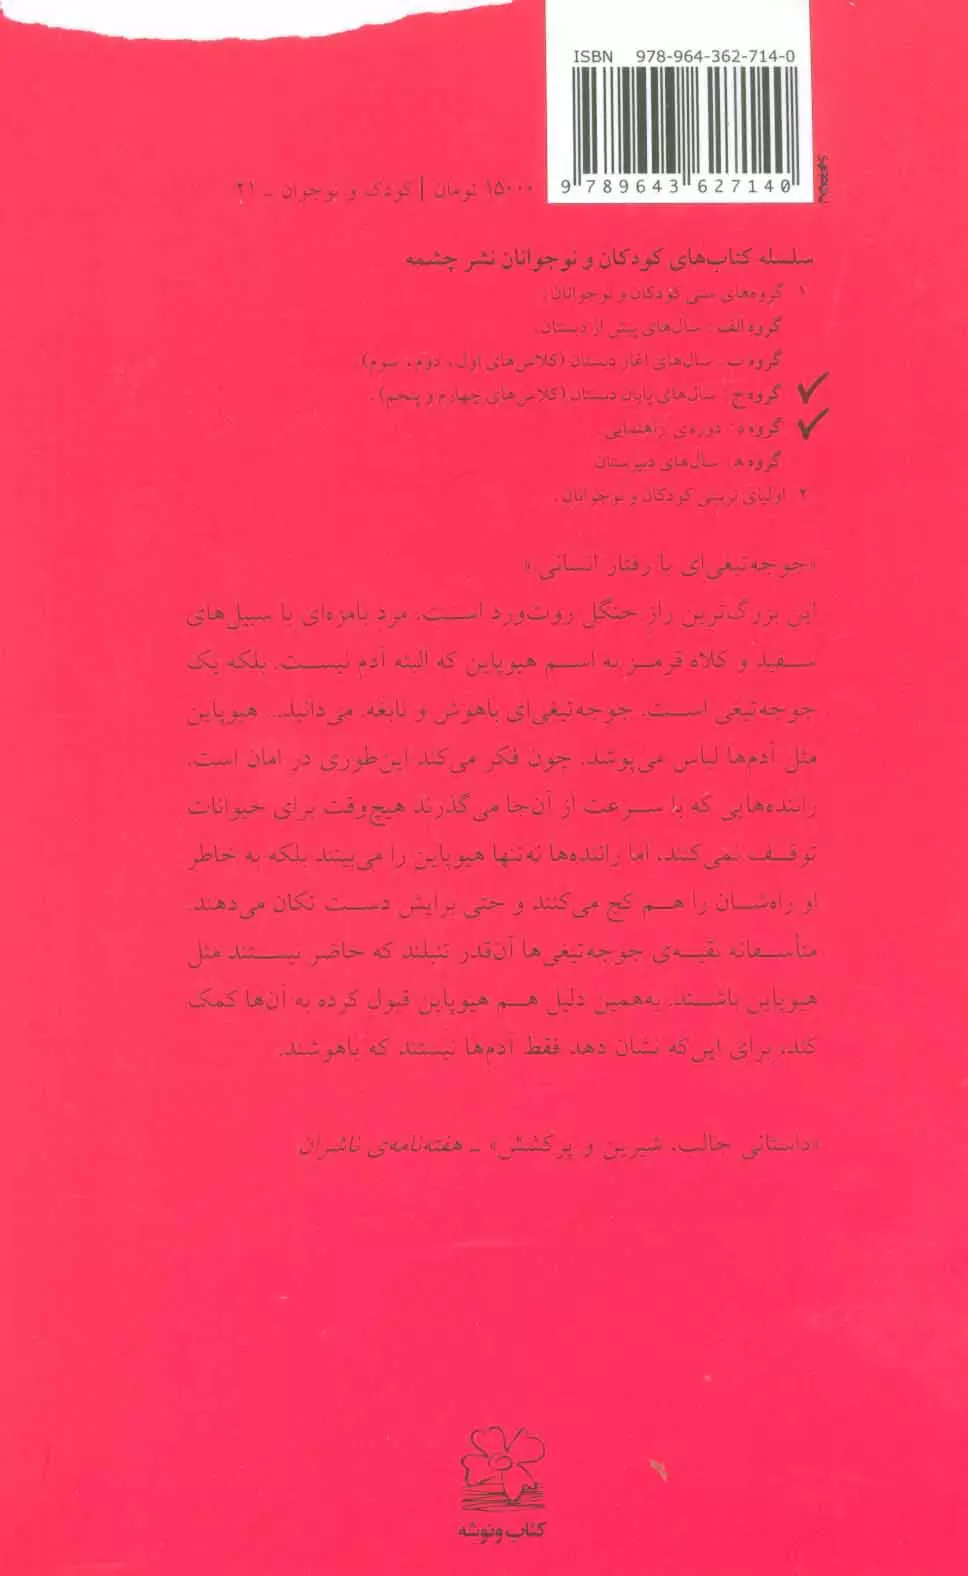 ISBN 978-964-362-714-0
9 789643 627140
۱۵۰۰۰ تومان | کودک و نوجوان ـ ۲۱
سلسله کتاب‌های کودکان و نوجوانان نشر چشمه
۱ گروه‌های سنی کودکان و نوجوانان:
گروه الف: سال‌های پیش از دبستان.
گروه ب: سال‌های آغاز دبستان (کلاس‌های اول، دوم، سوم).
✓ گروه ج: سال‌های پایان دبستان (کلاس‌های چهارم و پنجم).
✓ گروه د: دوره‌ی راهنمایی.
گروه ه: سال‌های دبیرستان
۲ اولیای تربیتی کودکان و نوجوانان.
«جوجه‌تیغی‌ای با رفتار انسانی.»
این بزرگ‌ترین راز جنگل روت‌ورد است. مرد بامزه‌ای با سبیل‌های
سفید و کلاه قرمز به اسم هیوپاین که البته آدم نیست. بلکه یک
جوجه‌تیغی است. جوجه‌تیغی‌ای باهوش و نابغه. می‌دانید... هیوپاین
مثل آدم‌ها لباس می‌پوشد. چون فکر می‌کند این‌طوری در امان است.
راننده‌هایی که با سرعت از آن‌جا می‌گذرند هیچ‌وقت برای حیوانات
توقف نمی‌کنند، اما راننده‌ها نه‌تنها هیوپاین را می‌بینند بلکه به خاطر
او راه‌شان را هم کج می‌کنند و حتی برایش دست تکان می‌دهند.
متأسفانه بقیه‌ی جوجه‌تیغی‌ها آن‌قدر تنبلند که حاضر نیستند مثل
هیوپاین باشند. به‌همین دلیل هم هیوپاین قبول کرده به آن‌ها کمک
کند، برای این‌که نشان دهد فقط آدم‌ها نیستند که باهوشند.
«داستانی جالب، شیرین و پرکشش» ـ هفته‌نامه‌ی ناشران
کتاب ونوشه